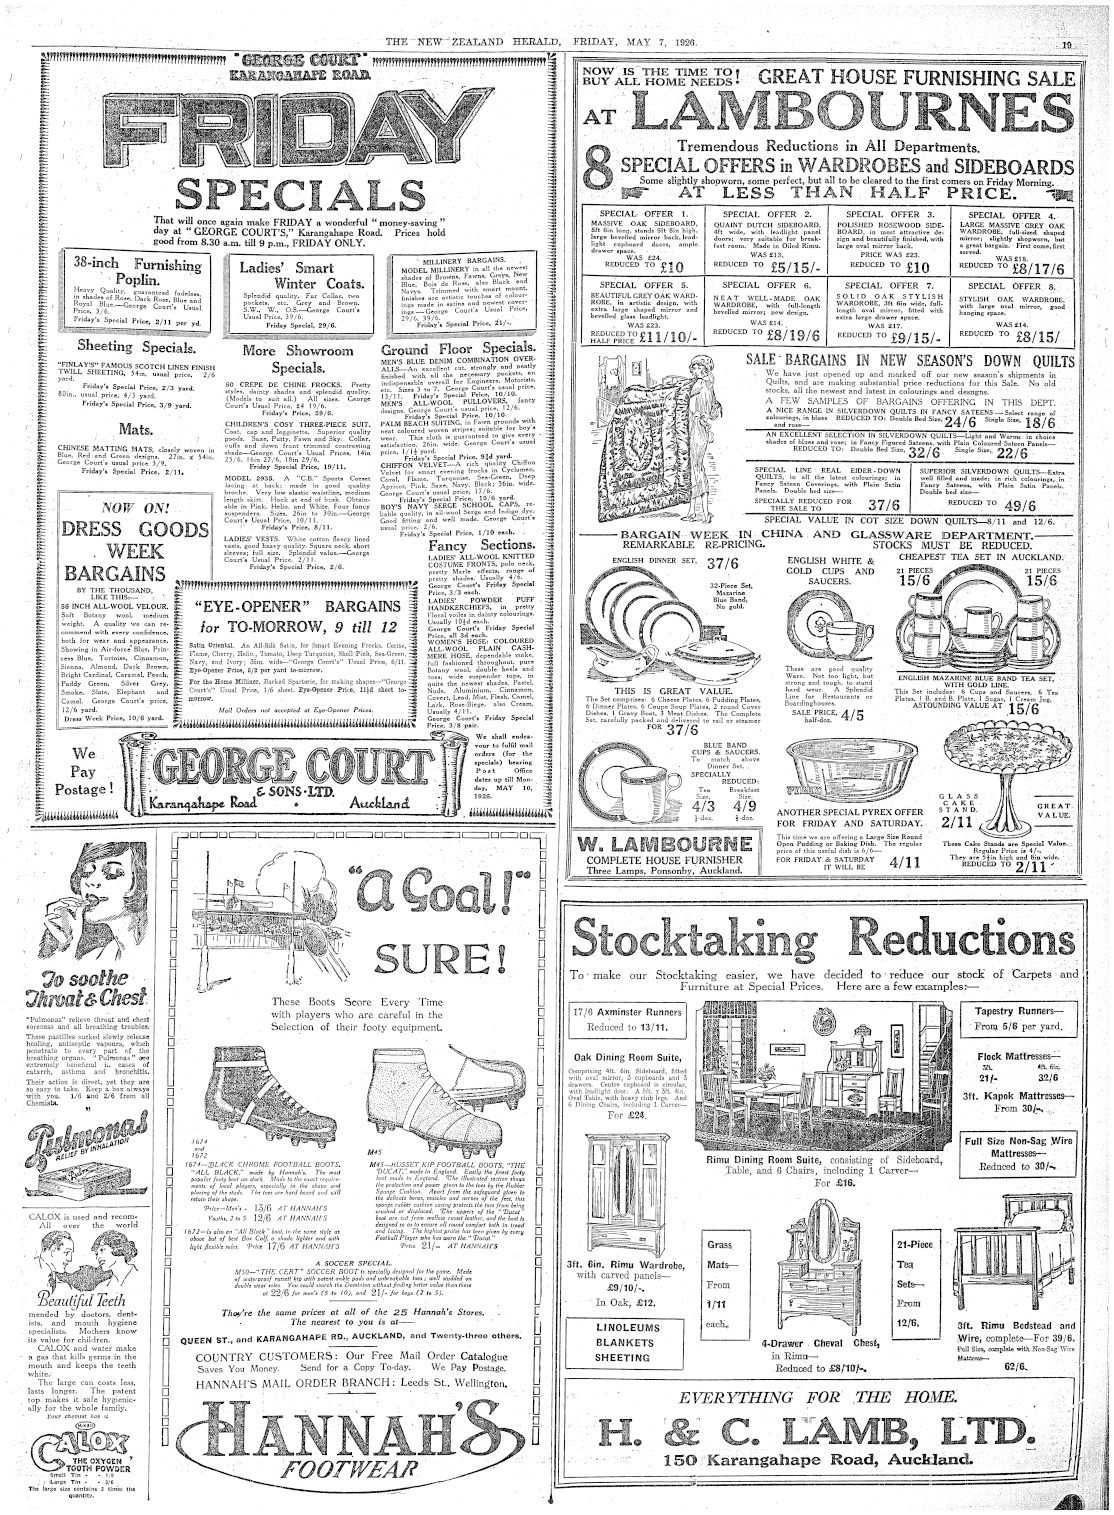 THE NEW ZEALAND HERALD, FRIDAY, MAY 7, 1926.
19
"GEORGE COURT"
KARANGAHAPE ROAD
FRIDAY
SPECIALS
That will once again make FRIDAY a wonderful "money-saving"
day at "GEORGE COURT'S," Karangahape Road. Prices hold
good from 8.30 a.m. till 9 p.m., FRIDAY ONLY.
38-inch Furnishing
Poplin.
Heavy Quality, guaranteed fadeless,
in shades of Rose, Dark Rose, Blue and
Royal Blue.—George Court's Usual
Price, 3/6.
Friday's Special Price, 2/11 per yd.
Ladies' Smart
Winter Coats.
Splendid quality, Fur Collar, two
pockets, etc. Grey and Brown.
S.W., W., O.S.—George Court's
Usual Price, 39/6.
Friday Special, 29/6.
MILLINERY BARGAINS.
MODEL MILLINERY in all the newest
shades of Browns, Fawns, Greys, New
Blue, Bois de Rose, also Black and
Navys. Trimmed with smart mount,
finishes are artistic touches of colour-
ings made in satins and newest cover-
ings—George Court's Usual Price,
29/6, 39/6.
Friday's Special Price, 21/-.
Sheeting Specials.
"FINLAY'S" FAMOUS SCOTCH LINEN FINISH
TWILL SHEETING, 54in. usual price, 2/6
yard.
Friday's Special Price, 2/3 yard.
80in., usual price, 4/3 yard.
Friday's Special Price, 3/9 yard.
Mats.
CHINESE MATTING MATS, closely woven in
Blue, Red and Green designs. 27in. x 54in.
George Court's usual price 3/9.
Friday's Special Price, 2/11.
NOW ON!
DRESS GOODS
WEEK
BARGAINS
BY THE THOUSAND,
LIKE THIS:—
56 INCH ALL-WOOL VELOUR.
Soft Botany wool, medium
weight. A quality we can re-
commend with every confidence,
both for wear and appearance.
Showing in Air-force Blue, Prin-
cess Blue, Tortoise, Cinnamon,
Sienna, Almond, Dark Brown,
Bright Cardinal, Caramel, Peach,
Paddy Green, Silver Grey,
Smoke, Slate, Elephant and
Camel. George Court's price,
12/6 yard.
Dress Week Price, 10/6 yard.
More Showroom
Specials.
50 CREPE DE CHINE FROCKS. Pretty
styles, dainty shades and splendid quality.
(Models to suit all.) All sizes. George
Court's Usual Price, £4 19/6.
Friday's Special Price, 59/6.
CHILDREN'S COSY THREE-PIECE SUIT.
Coat, cap and legginette. Superior quality
goods. Saxe, Putty, Fawn and Sky. Collar,
cuffs and down front trimmed contrasting
shade—George Court's Usual Prices, 14in
25/6, 16in 27/6, 18in 29/6.
Friday Special Price, 19/11.
MODEL 2935. A "C.B." Sports Corset
lacing at back; made in good quality
broche. Very low elastic waistline, medium
length skirt. Hook at end of busk. Obtain-
able in Pink, Helio. and White. Four fancy
suspenders. Sizes, 26in to 30in.—George
Court's Usual Price, 10/11.
Friday's Special Price, 8/11.
LADIES' VESTS. White cotton fleecy lined
vests, good heavy quality. Square neck, short
sleeves; full size. Splendid value.—George
Court's Usual Price, 2/11.
Friday's Special Price, 2/6.
Ground Floor Specials.
MEN'S BLUE DENIM COMBINATION OVER-
ALLS—An excellent cut, strongly and neatly
finished with all the necessary pockets, an
indispensable overall for Engineers, Motorists,
etc. Sizes 3 to 7. George Court's usual price,
13/11. Friday's Special Price, 10/10.
MEN'S ALL-WOOL PULLOVERS, fancy
designs. George Court's usual price, 12/6.
Friday's Special Price, 10/10.
PALM BEACH SUITING, in Fawn grounds with
neat coloured woven stripes; suitable for boy's
wear. This cloth is guaranteed to give every
satisfaction. 26in. wide. George Court's usual
price, 1/1½ yard.
Friday's Special Price, 9¾d yard.
CHIFFON VELVET—A rich quality Chiffon
Velvet for smart evening frocks in Cyclamen,
Coral, Flame, Turquoise, Sea-Green, Deep
Apricot, Pink, Saxe, Navy, Black; 36in. wide.
George Court's usual price, 17/6.
Friday's Special Price, 15/6 yard.
BOY'S NAVY SERGE SCHOOL CAPS, re-
liable quality, in all-wool Serge and Indigo dye.
Good fitting and well made. George Court's
usual price, 2/6.
Friday's Special Price, 1/10 each.
Fancy Sections.
LADIES' ALL-WOOL KNITTED
COSTUME FRONTS, polo neck,
pretty Marle effects, range of
pretty shades. Usually 4/6.
George Court's Friday Special
Price, 3/3 each.
LADIES' POWDER PUFF
HANDKERCHIEFS, in pretty
Floral voiles in dainty colourings.
Usually 10½d each.
George Court's Friday Special
Price, all 3d each.
WOMEN'S HOSE: COLOURED
ALL-WOOL PLAIN CASH-
MERE HOSE, dependable make,
full fashioned throughout, pure
Botany wool, double heels and
toes, wide suspender tops, in
quite the newest shades, Pastel,
Nude, Aluminium, Cinnamon,
Covert, Leaf, Mist, Flesh, Camel,
Lark, Rose-Biege, also Cream.
Usually 4/11.
George Court's Friday Special
Price, 3/8 pair.
"EYE-OPENER" BARGAINS
for TO-MORROW, 9 till 12
Satin Oriental. An All-Silk Satin, for Smart Evening Frocks. Cerise,
Flame, Cherry, Helio., Tomato, Deep Turquoise, Shell Pink, Sea-Green,
Navy, and Ivory; 36in. wide—"George Court's" Usual Price, 6/11.
Eye-Opener Price, 5/3 per yard to-morrow.
For the Home Milliner, Barked Sparterie, for making shapes—"George
Court's" Usual Price, 1/6 sheet. Eye-Opener Price, 11½d sheet to-
morrow.
Mail Orders not accepted at Eye-Opener Prices.
We
Pay
Postage!
GEORGE COURT
& SONS LTD.
Karangahape Road • Auckland
We shall endea-
vour to fulfil mail
orders (for the
specials) bearing
Post Office
dates up till Mon-
day, MAY 10,
1926.
NOW IS THE TIME TO
BUY ALL HOME NEEDS!
GREAT HOUSE FURNISHING SALE
AT LAMBOURNES
Tremendous Reductions in All Departments.
8 SPECIAL OFFERS in WARDROBES and SIDEBOARDS
Some slightly shopworn, some perfect, but all to be cleared to the first comers on Friday Morning.
AT LESS THAN HALF PRICE.
SPECIAL OFFER 1.
MASSIVE OAK SIDEBOARD,
5ft 6in long, stands 5ft 6in high,
large bevelled mirror back, lead-
light cupboard doors, ample
drawer space.
WAS £24.
REDUCED TO £10
SPECIAL OFFER 2.
QUAINT DUTCH SIDEBOARD,
4ft wide, with leadlight panel
doors; very suitable for break-
fast room. Made in Oiled Rimu.
WAS £13.
REDUCED TO £5/15/-
SPECIAL OFFER 3.
POLISHED ROSEWOOD SIDE-
BOARD, in most attractive de-
sign and beautifully finished, with
large oval mirror back.
PRICE WAS £23.
REDUCED TO £10
SPECIAL OFFER 4.
LARGE MASSIVE GREY OAK
WARDROBE, full-sized shaped
mirror; slightly shopworn, but
a great bargain. First come, first
served.
WAS £18.
REDUCED TO £8/17/6
SPECIAL OFFER 5.
BEAUTIFUL GREY OAK WARD-
ROBE, in artistic design, with
extra large shaped mirror and
bevelled glass leadlight.
WAS £23.
REDUCED TO
HALF PRICE £11/10/-
SPECIAL OFFER 6.
NEAT WELL-MADE OAK
WARDROBE, with full-length
bevelled mirror; new design.
WAS £14.
REDUCED TO £8/19/6
SPECIAL OFFER 7.
SOLID OAK STYLISH
WARDROBE, 3ft 6in wide, full-
length oval mirror, fitted with
extra large drawer space.
WAS £17.
REDUCED TO £9/15/-
SPECIAL OFFER 8.
STYLISH OAK WARDROBE,
with large oval mirror, good
hanging space.
WAS £14.
REDUCED TO £8/15/
SALE BARGAINS IN NEW SEASON'S DOWN QUILTS
We have just opened up and marked off our new season's shipments in
Quilts, and are making substantial price reductions for this Sale. No old
stocks, all the newest and latest in colourings and designs.
A FEW SAMPLES OF BARGAINS OFFERING IN THIS DEPT.
A NICE RANGE IN SILVERDOWN QUILTS IN FANCY SATEENS—Select range of
colourings, in blues and rose— REDUCED TO: Double Bed Size, 24/6 Single Size, 18/6
AN EXCELLENT SELECTION IN SILVERDOWN QUILTS—Light and Warm; in choice
shades of blues and rose; in Fancy Figured Sateens, with Plain Coloured Sateen Panels—
REDUCED TO: Double Bed Size, 32/6 Single Size, 22/6
SPECIAL LINE REAL EIDER-DOWN
QUILTS, in all the latest colourings; in
Fancy Sateen Coverings, with Plain Satin
Panels. Double bed size—
SPECIALLY REDUCED FOR
THE SALE TO 37/6
SUPERIOR SILVERDOWN QUILTS—Extra
well filled and made; in rich colourings, in
Fancy Sateens, with Plain Satin Panels.
Double bed size—
REDUCED TO 49/6
SPECIAL VALUE IN COT SIZE DOWN QUILTS—8/11 and 12/6.
BARGAIN WEEK IN CHINA AND GLASSWARE DEPARTMENT.
REMARKABLE RE-PRICING. STOCKS MUST BE REDUCED.
ENGLISH DINNER SET, 37/6
32-Piece Set,
Mazarine
Blue Band,
No gold.
THIS IS GREAT VALUE.
The Set comprises: 6 Cheese Plates, 6 Pudding Plates,
6 Dinner Plates, 6 Coupe Soup Plates, 2 round Cover
Dishes, 1 Gravy Boat, 3 Meat Dishes. The Complete
Set, carefully packed and delivered to rail or steamer
FOR 37/6
ENGLISH WHITE &
GOLD CUPS AND
SAUCERS.
These are good quality
Ware. Not too light, but
strong and tough, to stand
hard wear. A Splendid
Line for Restaurants or
Boardinghouses.
SALE PRICE, half-doz. 4/5
CHEAPEST TEA SET IN AUCKLAND.
21 PIECES
15/6
21 PIECES
15/6
ENGLISH MAZARINE BLUE BAND TEA SET,
WITH GOLD LINE.
This Set includes: 6 Cups and Saucers, 6 Tea
Plates, 1 B. and B. Plate, 1 Sugar, 1 Cream Jug.
ASTOUNDING VALUE AT 15/6
BLUE BAND
CUPS & SAUCERS.
To match above
Dinner Set.
SPECIALLY
REDUCED:
Tea Size, 4/3 ½-doz.
Breakfast Size, 4/9 ½-doz.
PYREX
ANOTHER SPECIAL PYREX OFFER
FOR FRIDAY AND SATURDAY.
This time we are offering a Large Size Round
Open Pudding or Baking Dish. The regular
price of this useful dish is 6/6—
FOR FRIDAY & SATURDAY
IT WILL BE 4/11
GLASS
CAKE
STAND.
2/11
GREAT
VALUE.
These Cake Stands are Special Value.
Regular Price is 4/-.
They are 5½in high and 8in wide.
REDUCED TO 2/11
W. LAMBOURNE
COMPLETE HOUSE FURNISHER
Three Lamps, Ponsonby, Auckland.
To soothe
Throat & Chest
"Pulmonas" relieve throat and chest
soreness and all breathing troubles.
These pastilles sucked slowly release
healing, antiseptic vapours, which
penetrate to every part of the
breathing organs. "Pulmonas" are
extremely beneficial in cases of
catarrh, asthma and bronchitis.
Their action is direct, yet they are
so easy to take. Keep a box always
with you. 1/6 and 2/6 from all
Chemists.
Pulmonas
RELIEF BY INHALATION
CALOX is used and recom-
All over the world
Beautiful Teeth
mended by doctors, dent-
ists, and mouth hygiene
specialists. Mothers know
its value for children.
CALOX and water make
a gas that kills germs in the
mouth and keeps the teeth
white.
The large can costs less,
lasts longer. The patent
top makes it safe hygienic-
ally for the whole family.
Your chemist has it
CALOX
THE OXYGEN
TOOTH POWDER
Small Tin - - 1/9
Large Tin - - 3/6
The large size contains 3 times the
quantity.
"A Goal!"
SURE!
These Boots Score Every Time
with players who are careful in the
Selection of their footy equipment.
1674
and
1672
M45
1674—BLACK CHROME FOOTBALL BOOTS,
"ALL BLACK," made by Hannah's. The most
popular footy boot we stock. Made to the exact require-
ments of local players, especially in the shape and
placing of the studs. The toes are hard boxed and will
retain their shape.
Price—Men's - 13/6 AT HANNAH'S
Youths, 2 to 5 12/6 AT HANNAH'S
1672—Is also an "All Black" boot, in the same style as
above but of best Box Calf, a shade lighter and with
light flexible soles. Price 17/6 AT HANNAH'S
M45—RUSSET KIP FOOTBALL BOOTS, "THE
DUCAT," made in England. Easily the finest footy
boot made in England. The illustrated section shows
the protection and power given to the toes by the Rubber
Sponge Cushion. Apart from the safeguard given to
the delicate bones, muscles and nerves of the feet, this
sponge rubber cushion casing protects the toes from being
crushed or displaced. The uppers of the "Ducat"
boot are cut from mellow russet leather, and the boot is
designed so as to ensure all round comfort both in tread
and lacing. The highest praise has been given by every
Football Player who has worn the "Ducat."
Price 21/- AT HANNAH'S
A SOCCER SPECIAL.
M50—"THE CERT" SOCCER BOOT is specially designed for the game. Made
of waterproof russet kip with patent ankle pads and unbreakable toes; well studded on
double wear soles. You could search the Dominion without finding better value than these
at 22/6 for men's (5 to 10), and 21/- for boys (2 to 5).
They're the same prices at all of the 25 Hannah's Stores.
The nearest to you is at—
QUEEN ST., and KARANGAHAPE RD., AUCKLAND, and Twenty-three others.
COUNTRY CUSTOMERS: Our Free Mail Order Catalogue
Saves You Money. Send for a Copy To-day. We Pay Postage.
HANNAH'S MAIL ORDER BRANCH: Leeds St., Wellington.
HANNAH'S
FOOTWEAR
Stocktaking Reductions
To make our Stocktaking easier, we have decided to reduce our stock of Carpets and
Furniture at Special Prices. Here are a few examples:—
17/6 Axminster Runners
Reduced to 13/11.
Oak Dining Room Suite,
Comprising 4ft. 6in. Sideboard, fitted
with oval mirror, 3 cupboards and 3
drawers. Centre cupboard is circular,
with leadlight door. A 5ft. x 3ft. 4in.
Oval Table, with heavy club legs. And
6 Dining Chairs, including 1 Carver—
For £24.
Tapestry Runners—
From 5/6 per yard.
Flock Mattresses—
3ft. 4ft. 6in.
21/- 32/6
3ft. Kapok Mattresses—
From 30/-.
Full Size Non-Sag Wire
Mattresses—
Reduced to 30/-.
Rimu Dining Room Suite, consisting of Sideboard,
Table, and 6 Chairs, including 1 Carver—
For £16.
3ft. 6in. Rimu Wardrobe,
with carved panels—
£9/10/-.
In Oak, £12.
LINOLEUMS
BLANKETS
SHEETING
Grass
Mats—
From
1/11
each.
4-Drawer Cheval Chest,
in Rimu—
Reduced to £8/10/-.
21-Piece
Tea
Sets—
From
12/6.
3ft. Rimu Bedstead and
Wire, complete—For 39/6.
Full Size, complete with Non-Sag Wire
Mattress—
62/6.
EVERYTHING FOR THE HOME.
H. & C. LAMB, LTD.
150 Karangahape Road, Auckland.